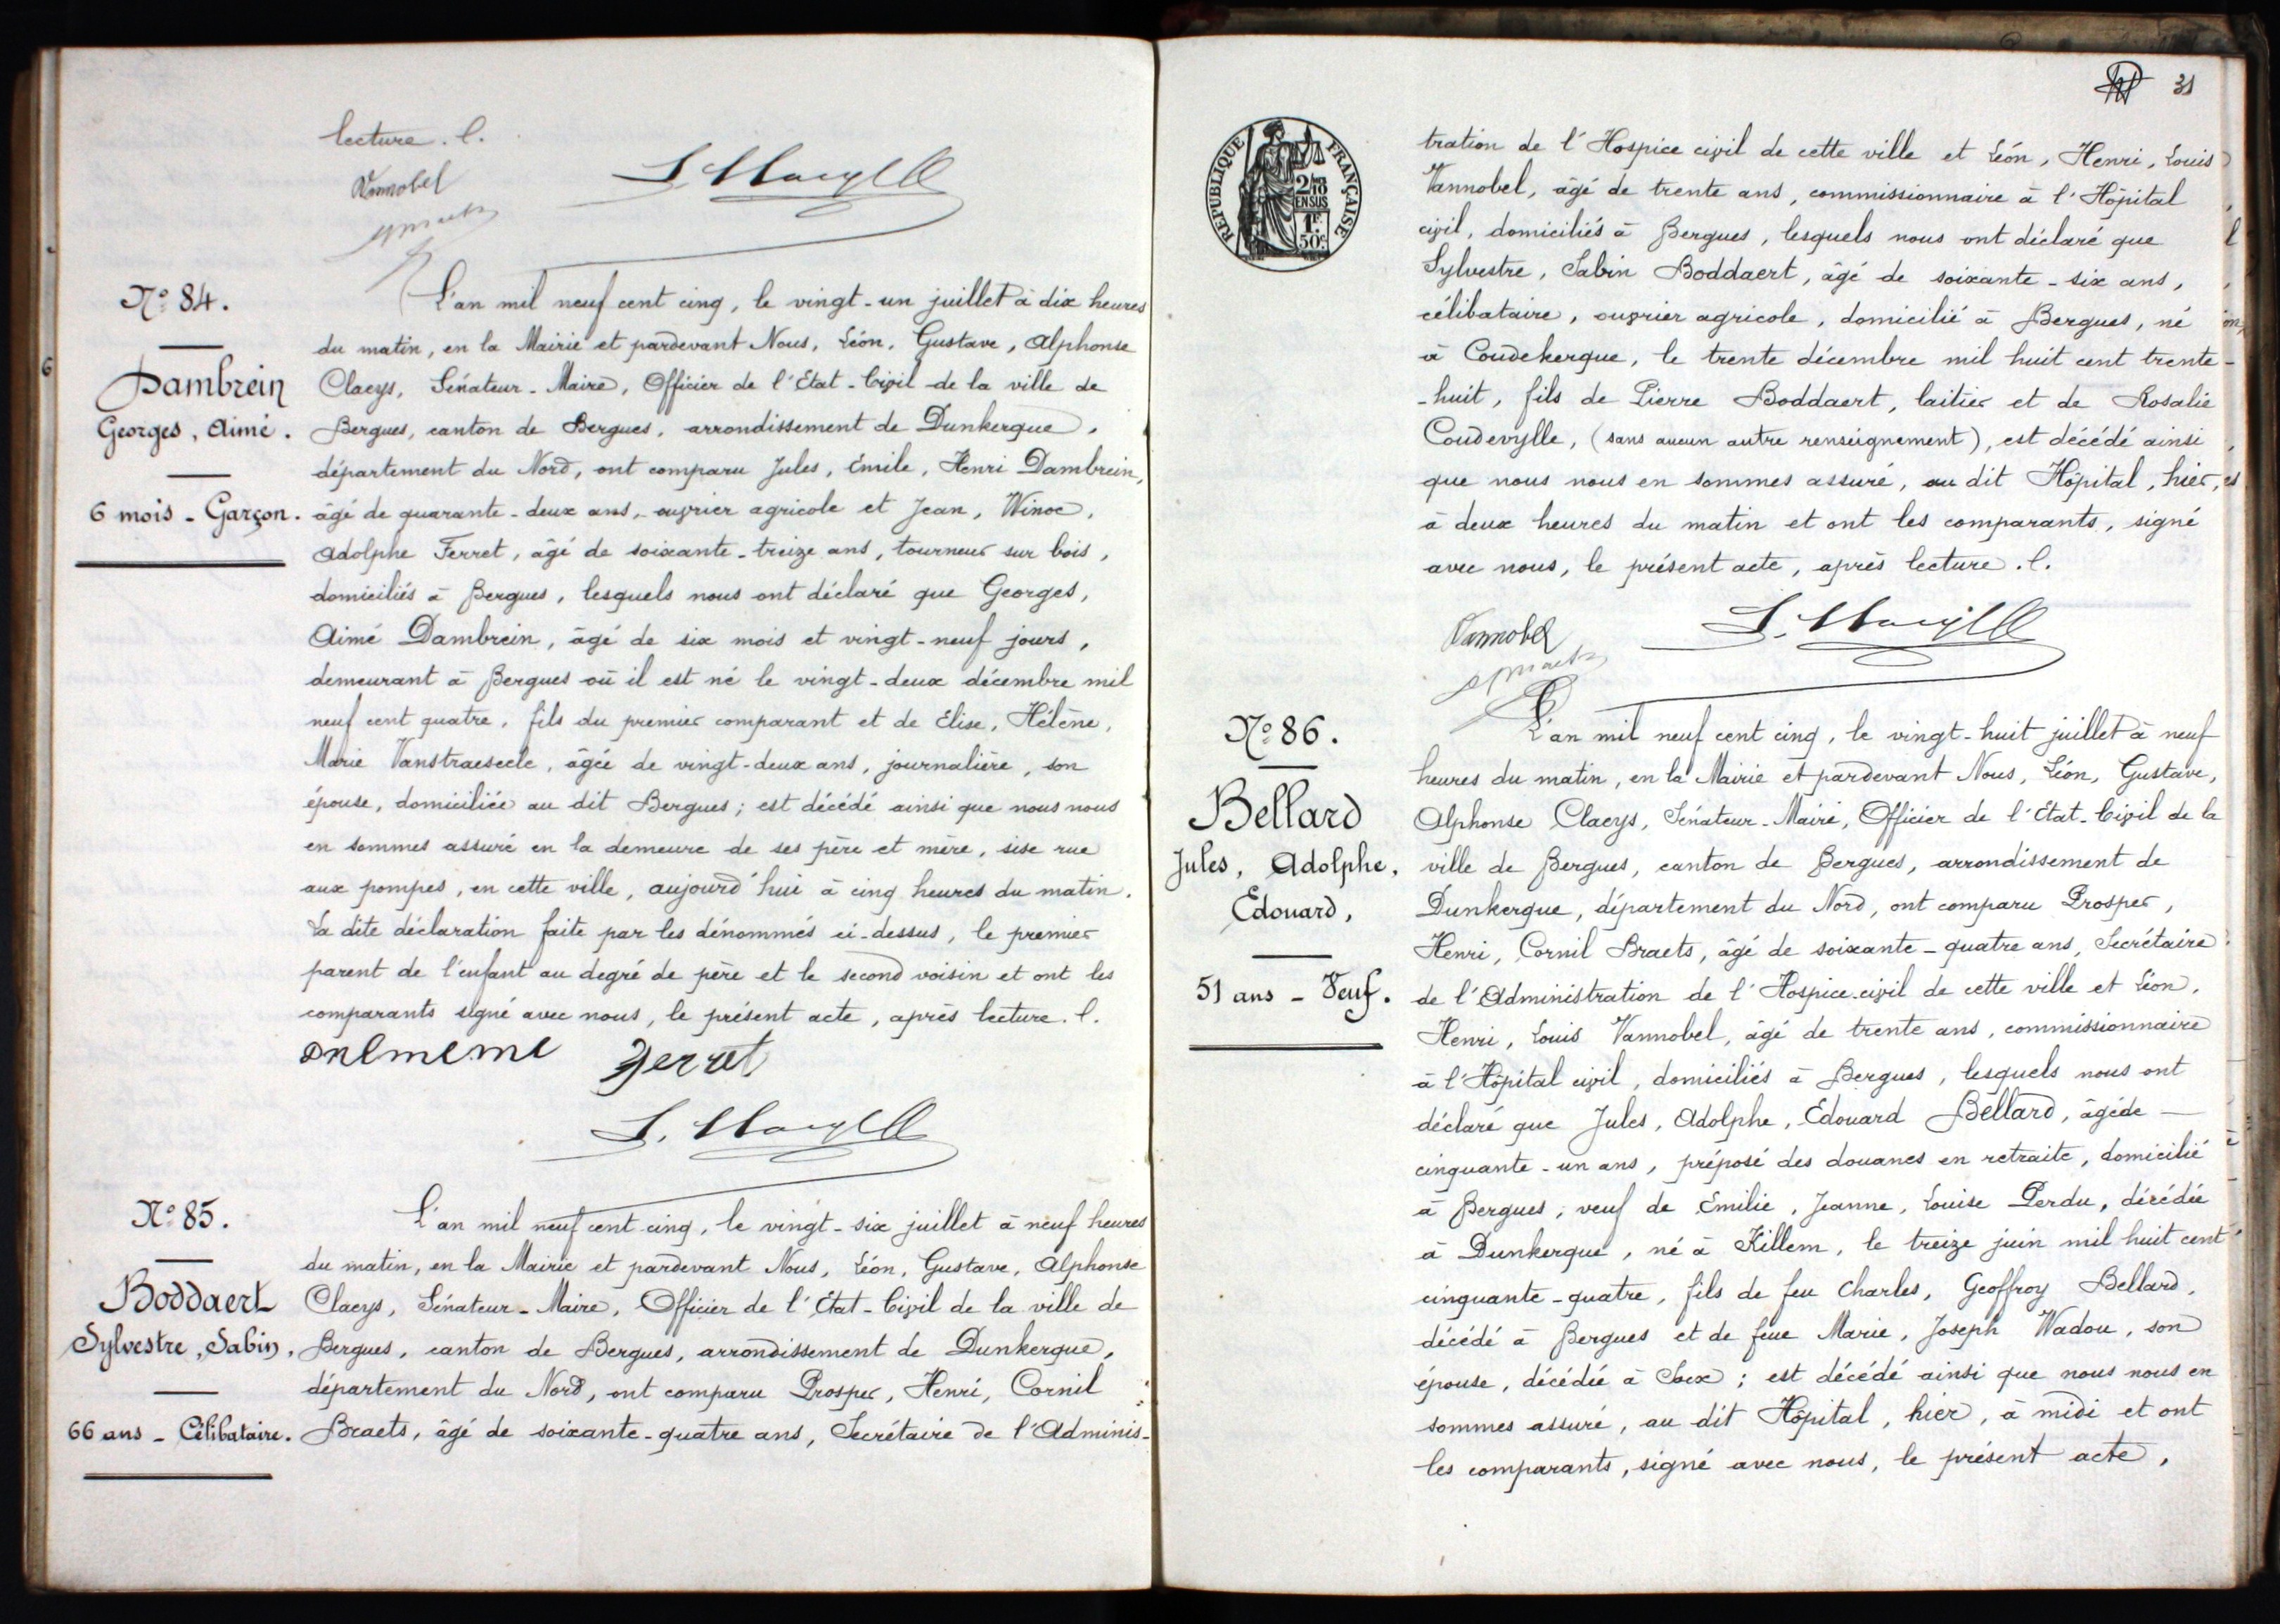 lecture. l.
Vannobel
L. Claeys
N° 84.
Dambrein
Georges, Aimé.
6 mois - Garçon.
L'an mil neuf cent cinq, le vingt-un juillet à dix heures
du matin, en la Mairie et pardevant Nous, Léon, Gustave, Alphonse
Claeys, Sénateur-Maire, Officier de l'Etat-Civil de la ville de
Bergues, canton de Bergues, arrondissement de Dunkerque,
département du Nord, ont comparu Jules, Emile, Henri Dambrein,
âgé de quarante-deux ans, ouvrier agricole et Jean, Winoc,
Adolphe Ferret, âgé de soixante-treize ans, tourneur sur bois,
domiciliés à Bergues, lesquels nous ont déclaré que Georges,
Aimé Dambrein, âgé de six mois et vingt-neuf jours,
demeurant à Bergues où il est né le vingt-deux décembre mil
neuf cent quatre, fils du premier comparant et de Elise, Hélène,
Marie Vanstraeseele, âgée de vingt-deux ans, journalière, son
épouse, domiciliée au dit Bergues; est décédé ainsi que nous nous
en sommes assuré en la demeure de ses père et mère, sise rue
aux pompes, en cette ville, aujourd'hui à cinq heures du matin.
La dite déclaration faite par les dénommés ci-dessus, le premier
parent de l'enfant au degré de père et le second voisin et ont les
comparants signé avec nous, le présent acte, après lecture. l.
Ferret
L. Claeys
N° 85.
Boddaert
Sylvestre, Sabin,
66 ans - Célibataire.
L'an mil neuf cent cinq, le vingt-six juillet à neuf heures
du matin, en la Mairie et pardevant Nous, Léon, Gustave, Alphonse
Claeys, Sénateur-Maire, Officier de l'Etat-Civil de la ville de
Bergues, canton de Bergues, arrondissement de Dunkerque,
département du Nord, ont comparu Prosper, Henri, Cornil
Braets, âgé de soixante-quatre ans, Secrétaire de l'Adminis-
31
RÉPUBLIQUE FRANÇAISE
2/10
EN SUS
1F.
50c
tration de l'Hospice civil de cette ville et Léon, Henri, Louis
Vannobel, âgé de trente ans, commissionnaire à l'Hôpital
civil, domiciliés à Bergues, lesquels nous ont déclaré que
Sylvestre, Sabin Boddaert, âgé de soixante-six ans,
célibataire, ouvrier agricole, domicilié à Bergues, né
à Coudekerque, le trente décembre mil huit cent trente-
-huit, fils de Pierre Boddaert, laitier et de Rosalie
Coudevylle, (sans aucun autre renseignement), est décédé ainsi
que nous nous en sommes assuré, au dit Hôpital, hier,
à deux heures du matin et ont les comparants, signé
avec nous, le présent acte, après lecture. l.
Vannobel
L. Claeys
N° 86.
Bellard
Jules, Adolphe,
Edouard,
51 ans - Veuf.
L'an mil neuf cent cinq, le vingt-huit juillet à neuf
heures du matin, en la Mairie et pardevant Nous, Léon, Gustave,
Alphonse Claeys, Sénateur-Maire, Officier de l'Etat-Civil de la
ville de Bergues, canton de Bergues, arrondissement de
Dunkerque, département du Nord, ont comparu Prosper,
Henri, Cornil Braets, âgé de soixante-quatre ans, Secrétaire
de l'Administration de l'Hospice civil de cette ville et Léon,
Henri, Louis Vannobel, âgé de trente ans, commissionnaire
à l'Hôpital civil, domiciliés à Bergues, lesquels nous ont
déclaré que Jules, Adolphe, Edouard Bellard, âgé de —
cinquante-un ans, préposé des douanes en retraite, domicilié
à Bergues, veuf de Emilie, Jeanne, Louise Perdu, décédée
à Dunkerque, né à Killem, le treize juin mil huit cent
cinquante-quatre, fils de feu Charles, Geoffroy Bellard,
décédé à Bergues et de feue Marie, Joseph Wadou, son
épouse, décédée à Socx; est décédé ainsi que nous nous en
sommes assuré, au dit Hôpital, hier, à midi et ont
les comparants, signé avec nous, le présent acte,